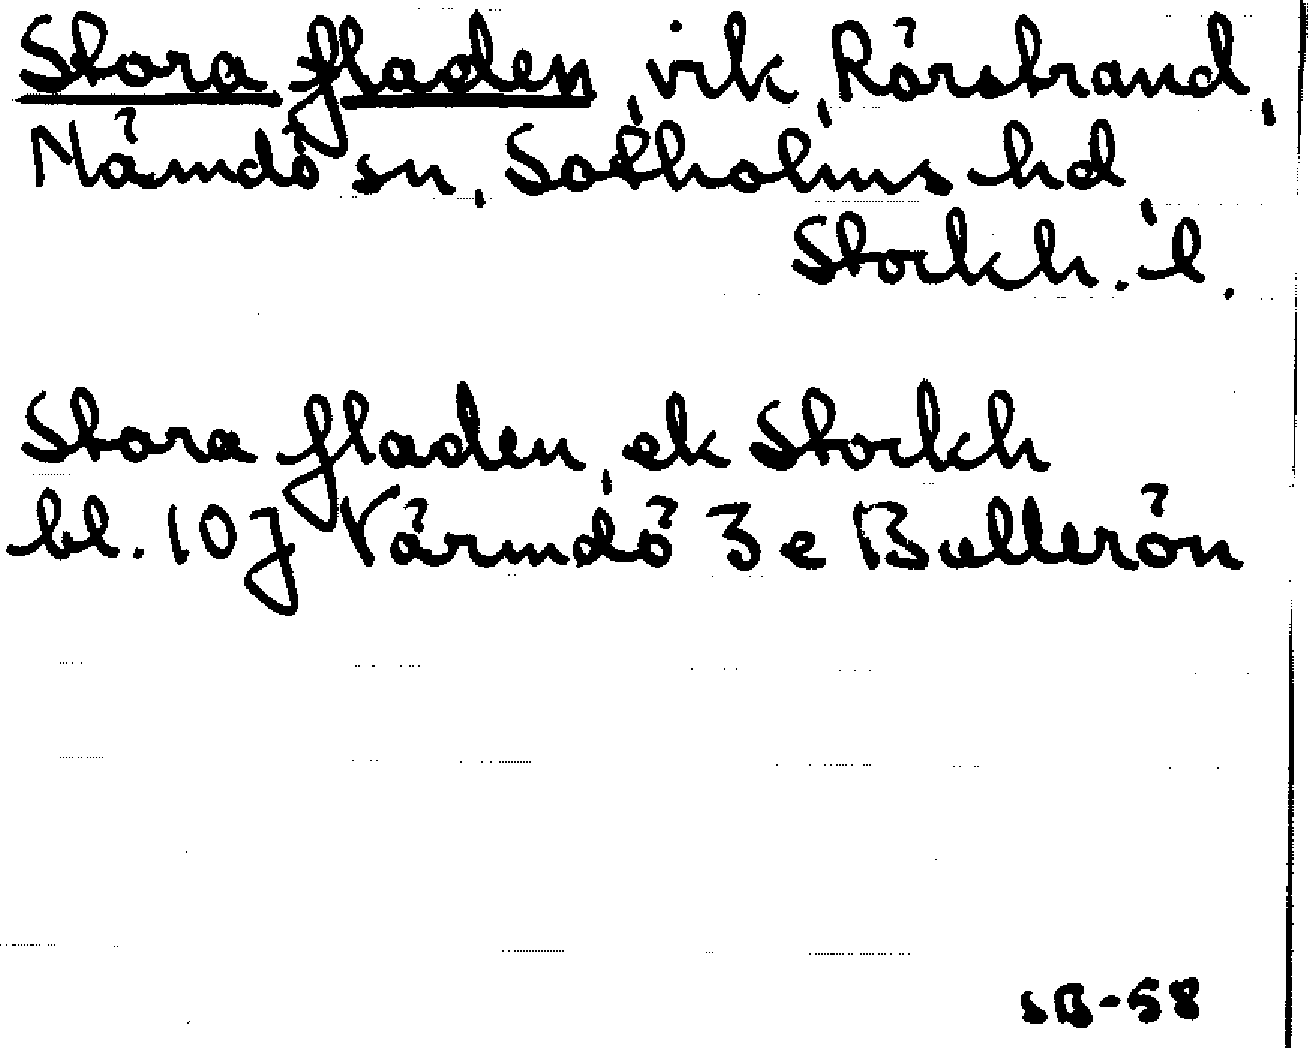 Stora fladen, vik, Rörstrand,
Nämdö sn, Sotholms hd,
Stockh. l.
Stora fladen, ek Stockh
bl. 10j Värmdö 3e Bullerön
SB-58